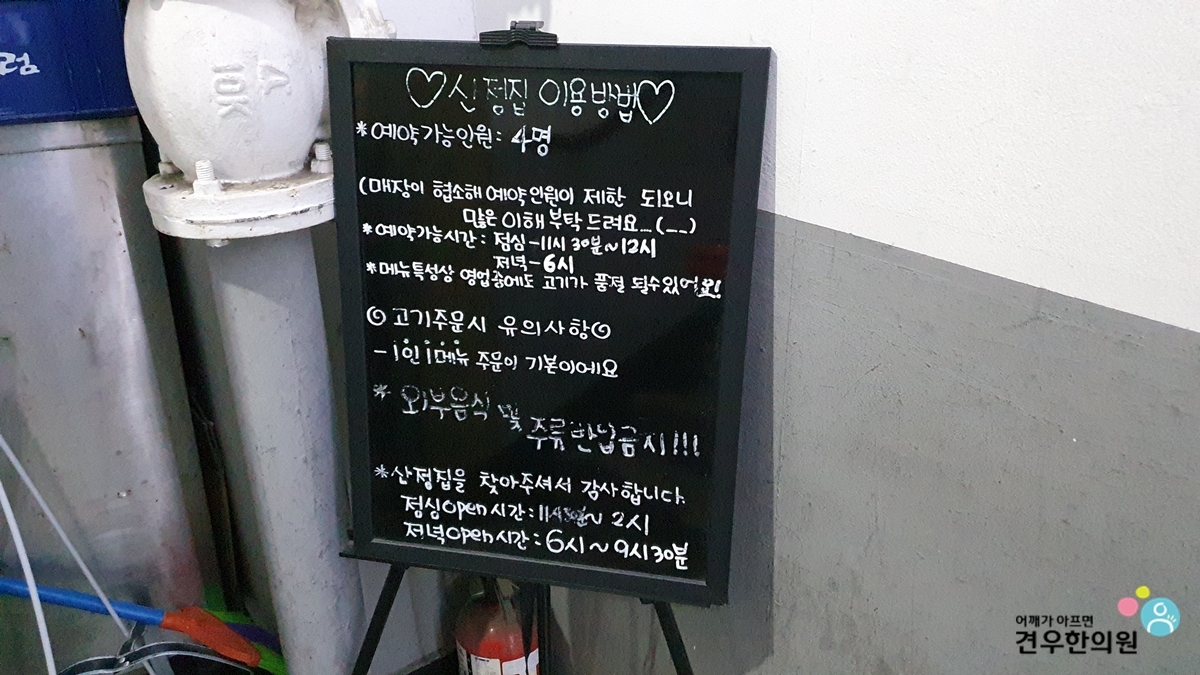 럼
10K
♡산정집 이용방법♡
*예약가능인원: 4명
(매장이 협소해 예약인원이 제한 되오니
많은 이해부탁드려요...(__)
*예약가능시간: 점심-11시 30분~12시
저녁-6시
*메뉴특성상 영업중에도 고기가 품절 될수있어요!
◎고기주문시 유의사항◎
-1인 1메뉴 주문이 기본이에요
* 외부음식 및
주류반입금지!!!
*산정집을 찾아주셔서 감사합니다.
점심open시간: ~ 2시
저녁open시간: 6시~9시30분
어깨가 아프면
견우한의원